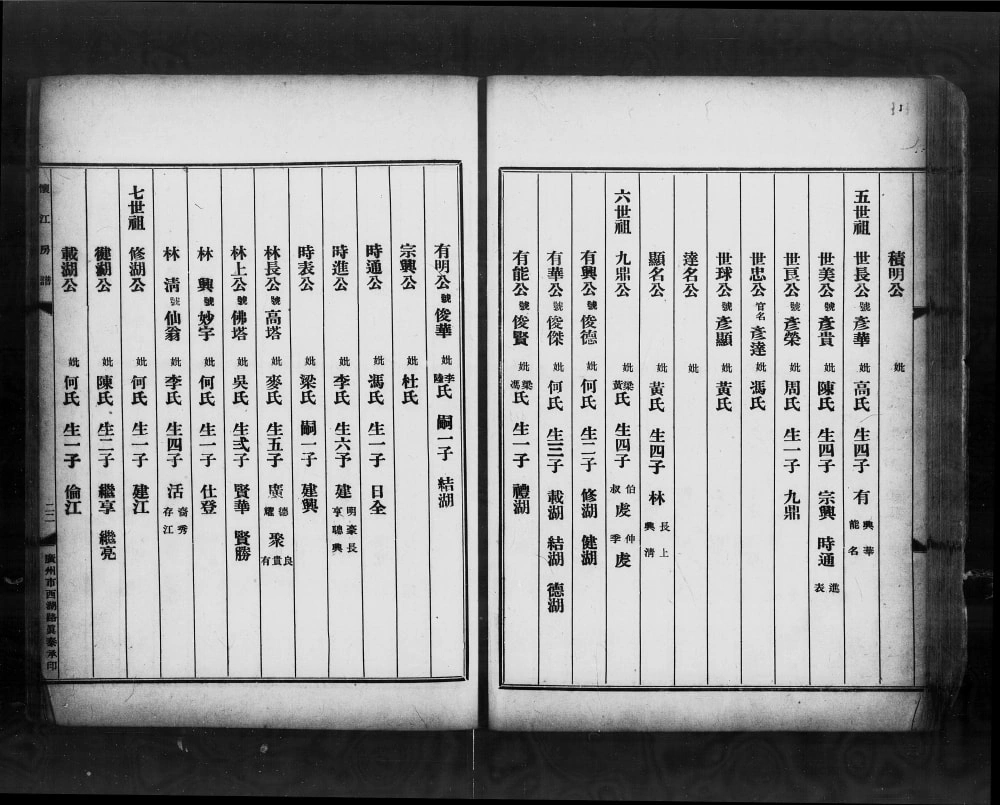 積明公 妣
五世祖 世長公 號 彥華 妣 高氏 生四子 有 興 華 能 名
世美公 號 彥貴 妣 陳氏 生四子 宗興 時通 進 表
世亘公 號 彥榮 妣 周氏 生一子 九鼎
世忠公 官名 彥達 妣 馮氏
世球公 號 彥顯 妣 黃氏
達名公 妣
顯名公 妣 黃氏 生四子 林 長 上 興 清
六世祖 九鼎公 妣 梁 黃 氏 生四子 伯 叔 虔 仲 季 虔
有興公 號 俊德 妣 何氏 生二子 修湖 健湖
有華公 號 俊傑 妣 何氏 生三子 載湖 結湖 德湖
有能公 號 俊賢 妣 梁 馮 氏 生一子 禮湖
有明公 號 俊華 妣 李 陸 氏 嗣一子 結湖
宗興公 妣 杜氏
時通公 妣 馮氏 生一子 日全
時進公 妣 李氏 生六子 建 明 豪 長 亨 聰 興
時表公 妣 梁氏 嗣一子 建興
林長公 號 高塔 妣 麥氏 生五子 廣 德 耀 聚 良 貴 有
林上公 號 佛塔 妣 吳氏 生弍子 賢華 賢勝
林興 號 妙宇 妣 何氏 生一子 仕登
林清 號 仙翁 妣 李氏 生四子 活 裔 秀 存 江
七世祖 修湖公 妣 何氏 生一子 建江
健湖公 妣 陳氏 生二子 繼享 繼亮
載湖公 妣 何氏 生一子 倫江
懷江房譜 二二 廣州市西湖路眞泰承印